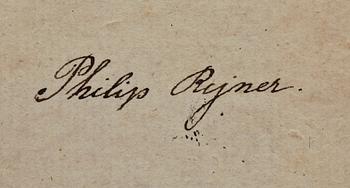 Philip Rejner.